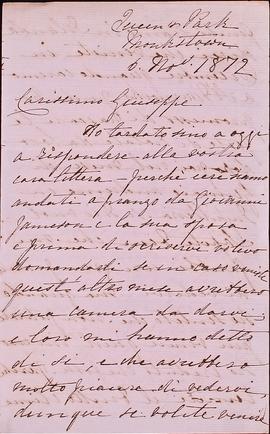 Queen's Park
Monkstown
6 Nov. 1872
Carissimo Giuseppe
Ho tardato sino a oggi
a rispondere alla vostra
cara lettera – perchè ieri siamo
andati a pranzo da Giovanni
Jameson e la sua sposa
e prima di scrivervi volevo
domandarli se in caso venite
quest'altro mese avrebbero
una camera da darvi
e loro mi hanno detto
di si, e che avrebbero
molto piacere di vedervi,
dunque se volete venire